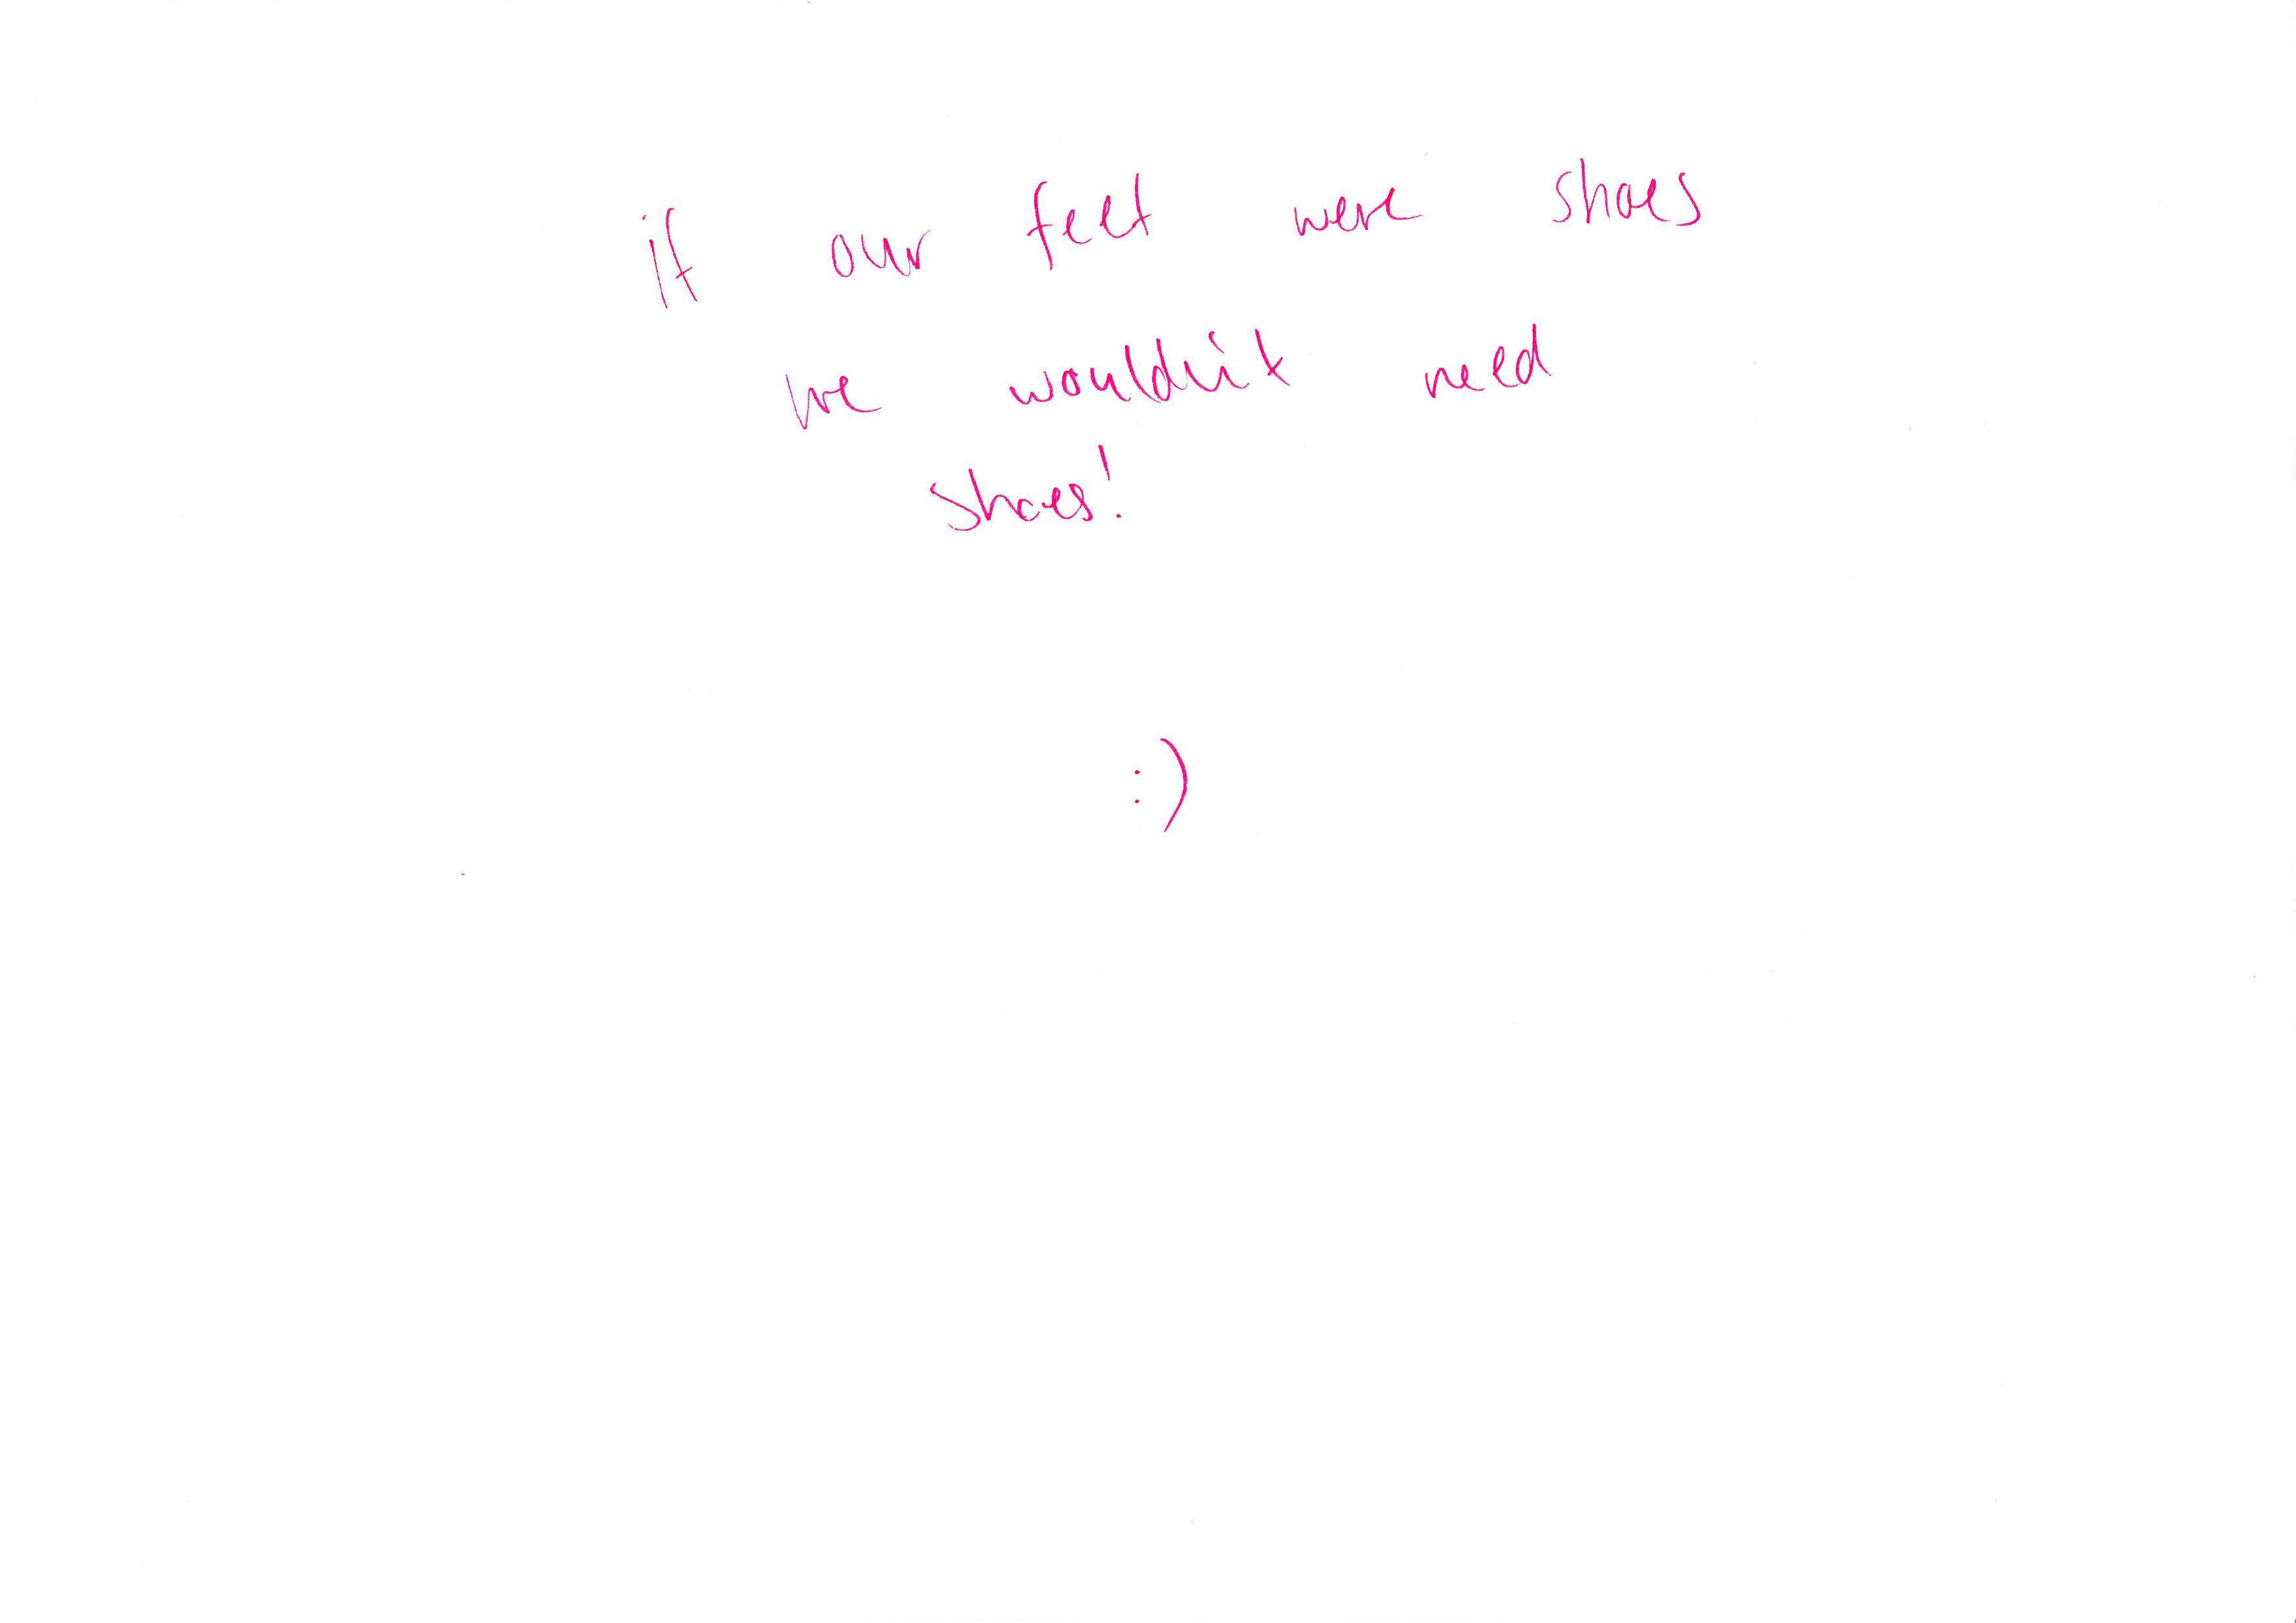 if our feet were shoes
we wouldn't need
shoes!
:)